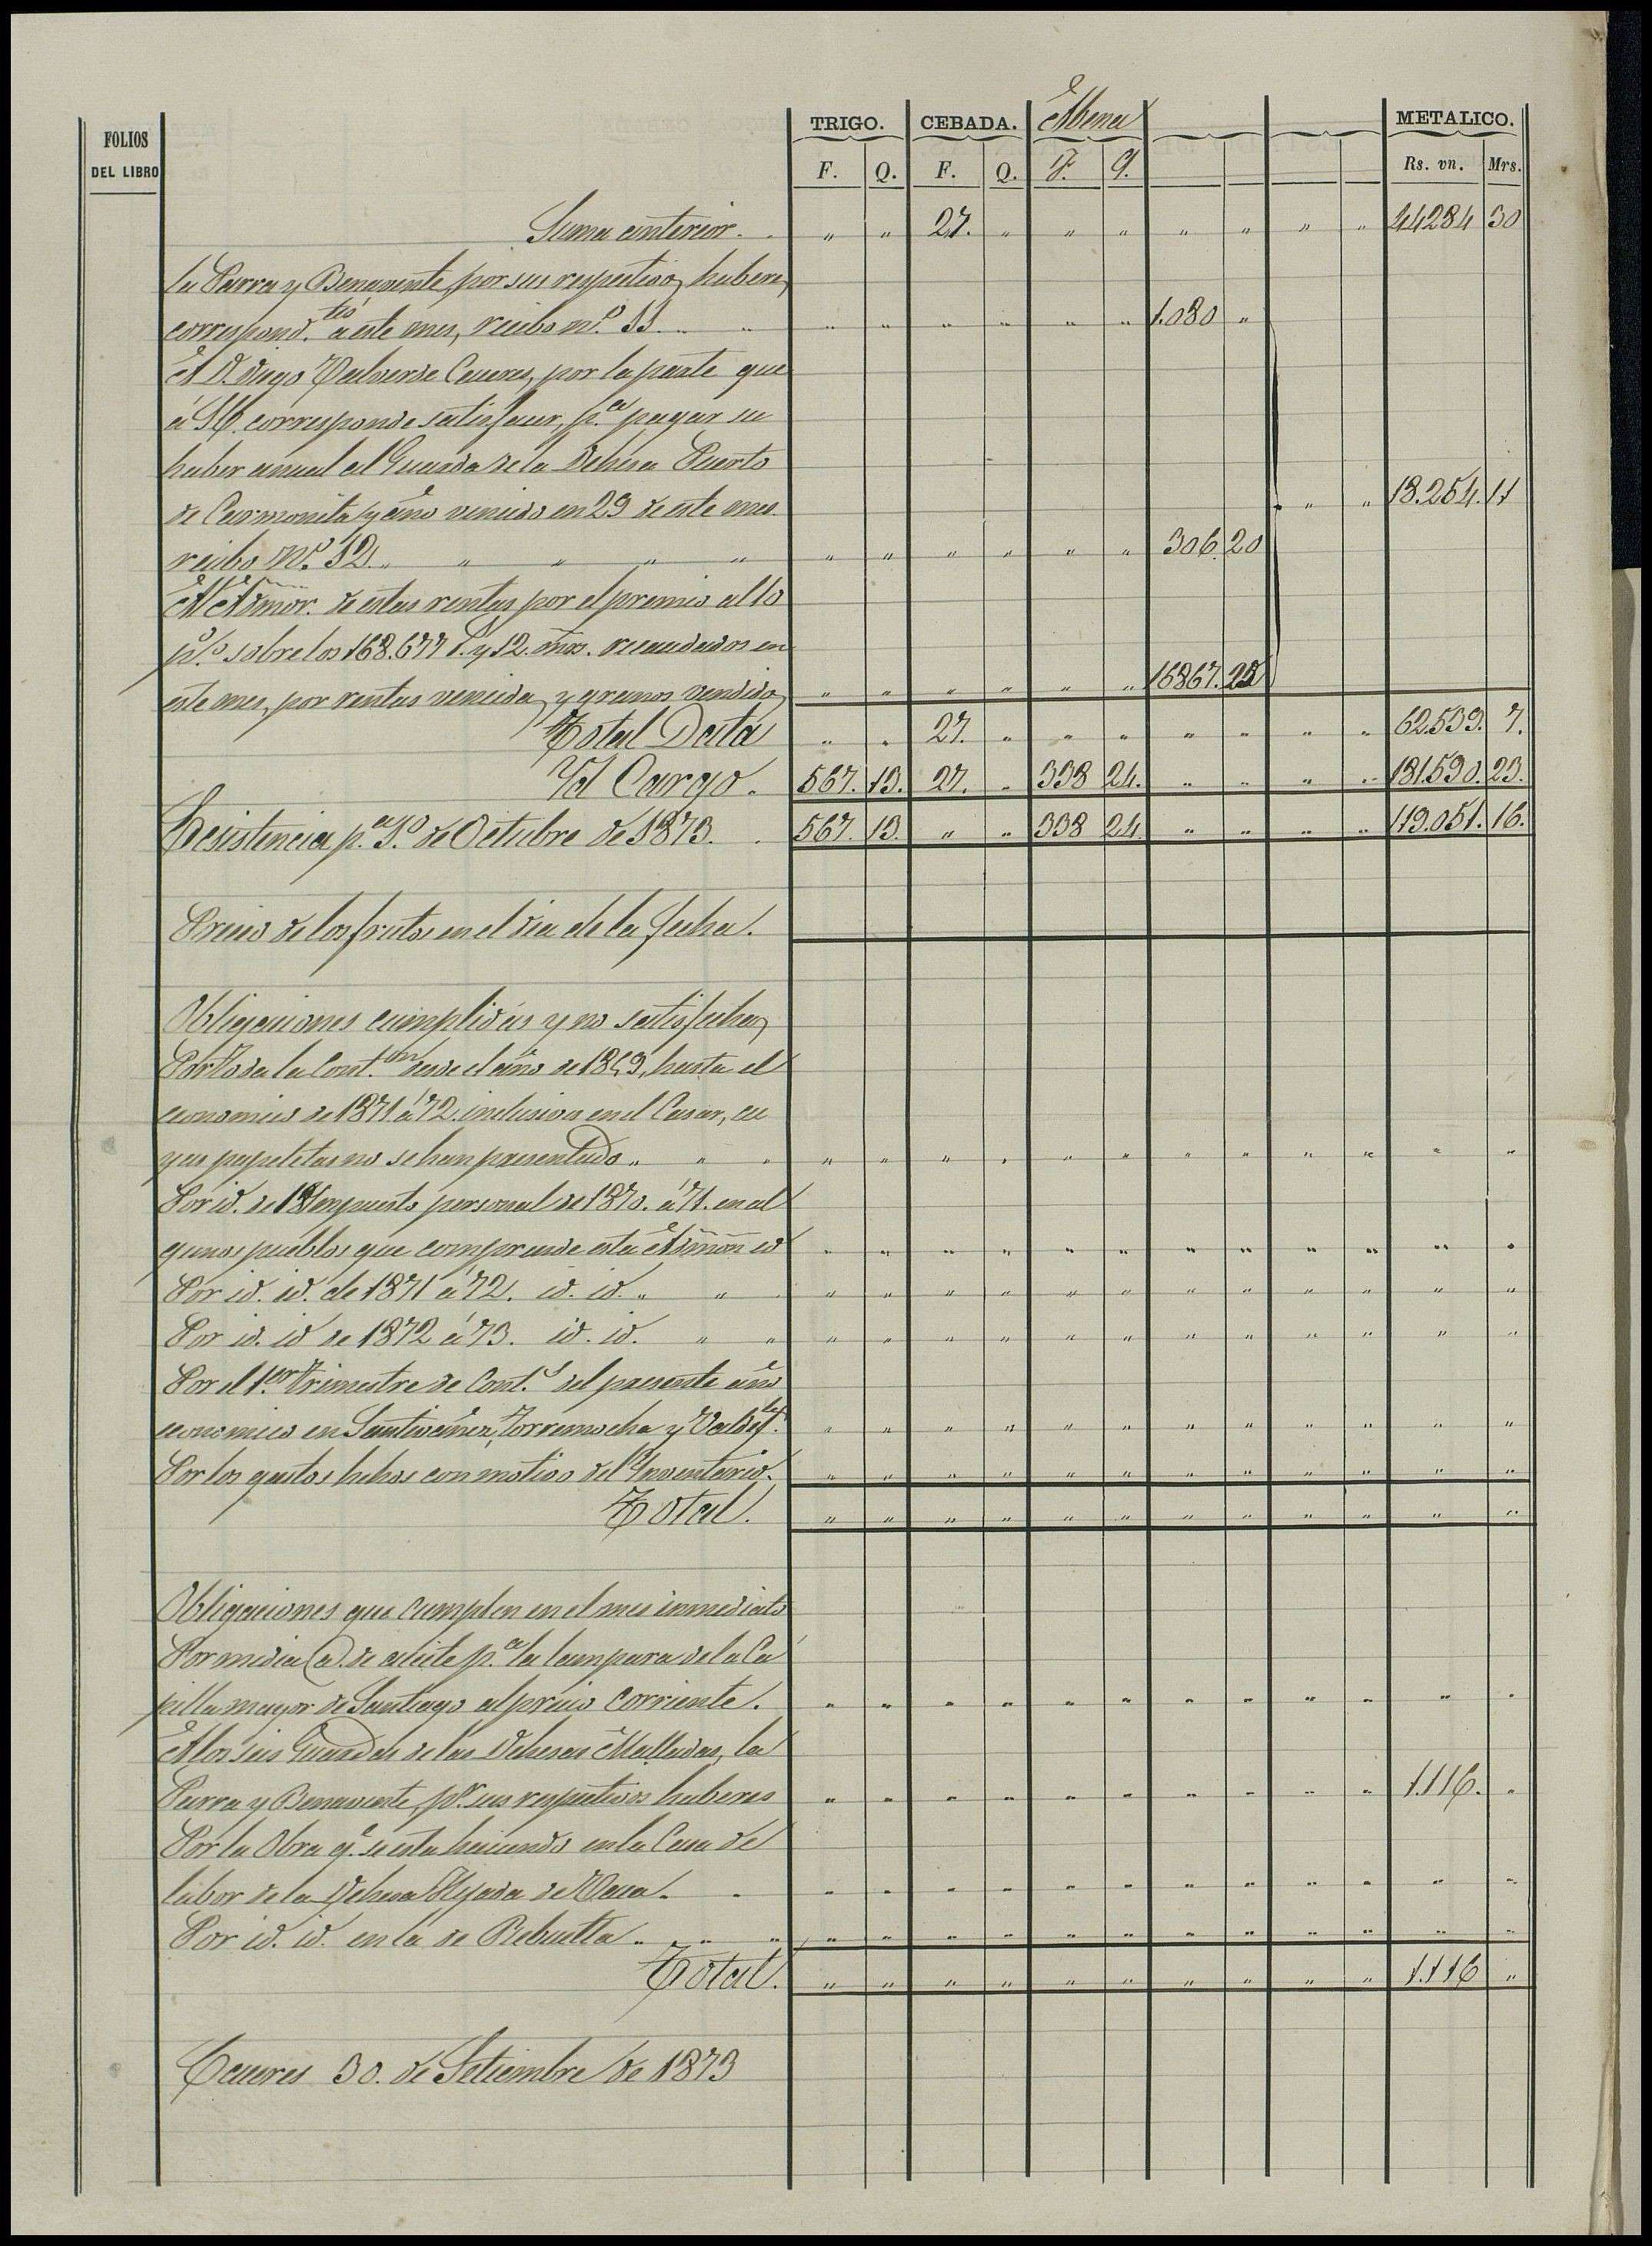 FOLIOS DEL LIBRO
TRIGO. CEBADA. Abena METALICO.
F. Q. F. Q. F. Q. Rs. vn. Mrs.
Suma anterior. . " " 27. " " " " " " " 44284 30
la Parra y Benavente, por sus respectivos haberes
correspond.tes á este mes, recibo n.º 11. " " " " " " " " 1.080 "
A D. Diego Valverde Caceres, por la parte que
á S.E. corresponde satisfacer, p.a pagar su
haber anual al Guarda de la Dehesa Puerto
de Carmonita y año vencido en 29 de este mes. " " 18.254. 11
recibo N.º 12. " " " " " " " " " " 306. 20
Al Admor. de estas rentas por el premio al 10
p.º/o sobre los 168.677 r. y 12. mrs. recaudados en
este mes, por rentas vencidas y granos vendidos " " " " " " 16867. 25
Total Data " " 27. " " " " " " " 62.539. 7.
Yd Cargo. 567. 13. 27. " 338 24. " " " " 181.590. 23.
Existencia p.a 1.º de Octubre de 1873. 567. 13. " " 338 24. " " " " 119.051. 16.
Precio de los frutos en el dia de la fecha.
Obligaciones cumplidas y no satisfechas
Por toda la Cont.on desde el año de 1869, hasta el
economico de 1871 á 72. inclusive en el Casar, cu
yas papeletas no se han presentado " " " " " " " " " " " " " " "
Por id. del Ympuesto personal de 1870. á 71. en al
gunos pueblos que comprende esta Admon id " " " " " " " " " " " "
Por id. id. de 1871 á 72. id. id. " " " " " " " " " " " " " "
Por id. id de 1872 á 73. id. id. " " " " " " " " " " " " " "
Por el 1.er Trimestre de Cont.s del presente año
economico en Santibañez, Torremocha y Valdef.s " " " " " " " " " " " "
Por los gastos hechos con motivo del Ynventario. " " " " " " " " " " " "
Total. " " " " " " " " " " " "
Obligaciones que cumplen en el mes inmediato
Por media @. de aceite p.a la lampara de la Ca
pilla mayor de Santiago al precio corriente. " " " " " " " " " " " "
A los seis Guardas de las Dehesas Malladas, la
Parra y Benavente, p.r sus respectivos haberes " " " " " " " " " " 1.116. "
Por la Obra q.e se esta haciendo en la Casa de
labor de la Dehesa Hijada de Vaca. " " " " " " " " " " " " "
Por id. id. en la de Rebuelta " " " " " " " " " " " " " " "
Total. " " " " " " " " " " 1.116 "
Caceres 30. de Setiembre de 1873